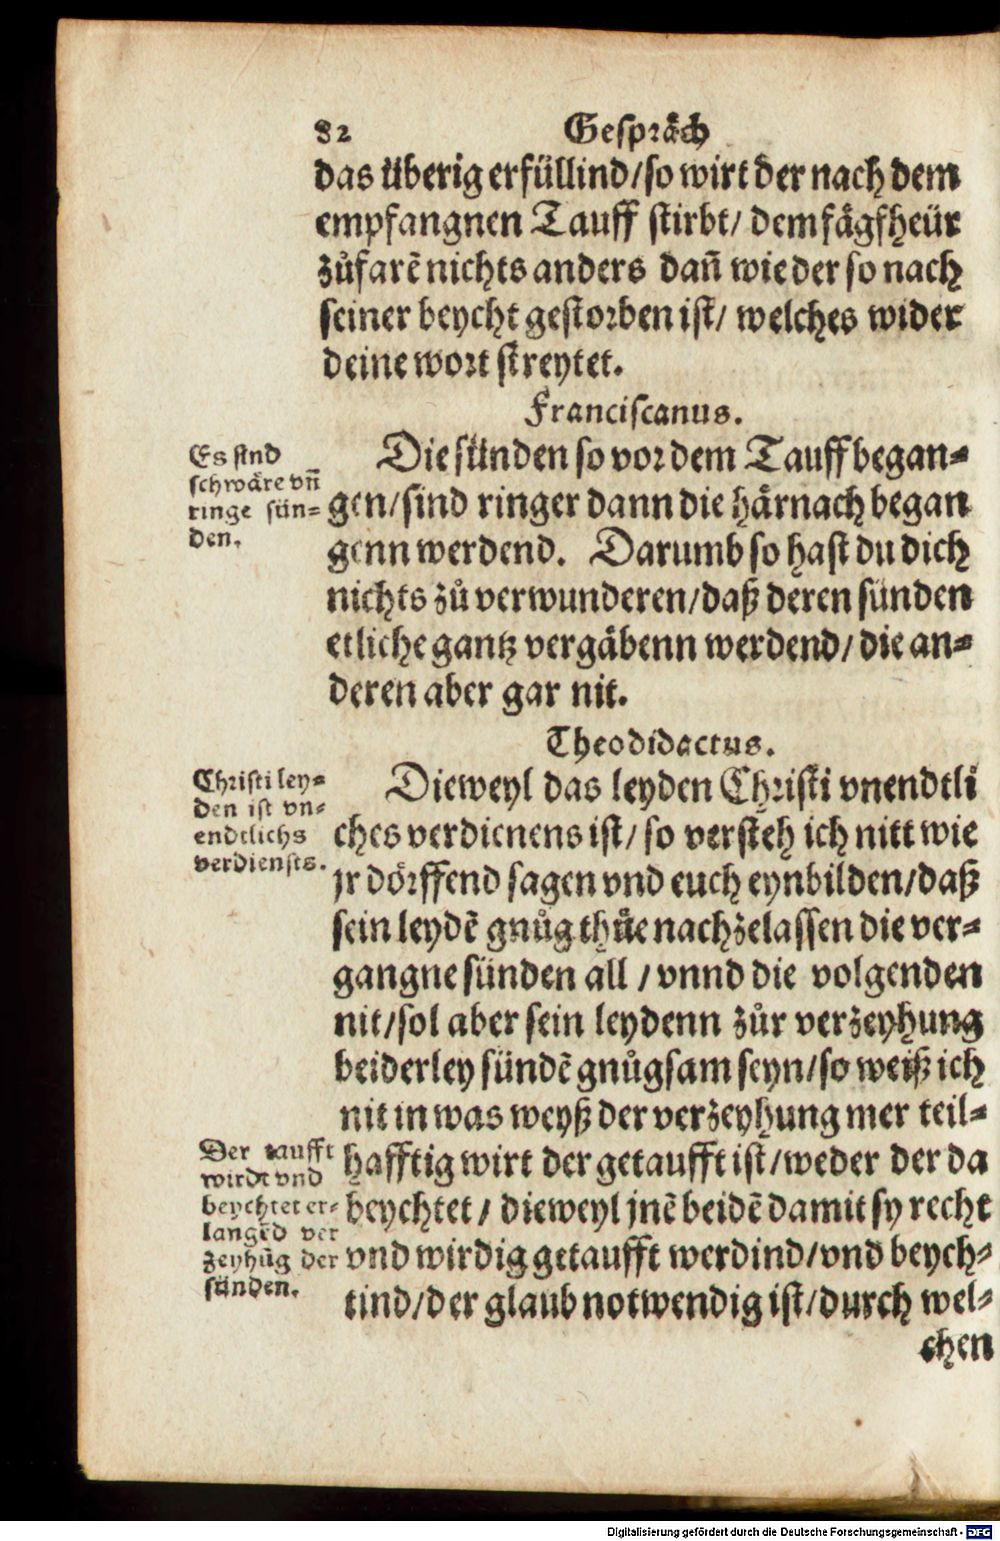 82 Gespräch
das überig erfüllind/so wirt der nach dem
empfangnen Tauff stirbt/ dem fägfheür
zůfarē nichts anders dañ wie der so nach
seiner beycht gestorben ist/ welches wider
deine wort streytet.
Franciscanus.
Es sind
schwäre vn̄
ringe sün=
den.
Die sünden so vor dem Tauff began=
gen/sind ringer dann die härnach began
genn werdend. Darumb so hast du dich
nichts zů verwunderen/daß deren sünden
etliche gantz vergäbenn werdend/die an=
deren aber gar nit.
Theodidactus.
Christi ley=
den ist vn=
endtlichs
verdiensts.
Dieweyl das leyden Christi vnendtli
ches verdienens ist/ so versteh ich nitt wie
jr dörffend sagen vnd euch eynbilden/daß
sein leydē gnůg thůe nachzelassen die ver=
gangne sünden all / vnnd die volgenden
nit/sol aber sein leydenn zůr verzeyhung
beiderley sündē gnůgsam seyn/so weiß ich
nit in was weyß der verzeyhung mer teil=
Der taufft
wirdt vnd
beychtet er=
langēd ver
zeyhūg der
sünden.
hafftig wirt der getaufft ist/weder der da
beychtet / dieweyl jnē beidē damit sy recht
vnd wirdig getaufft werdind/vnd beych=
tind/der glaub notwendig ist/durch wel=
chen
Digitalisierung gefördert durch die Deutsche Forschungsgemeinschaft - DFG